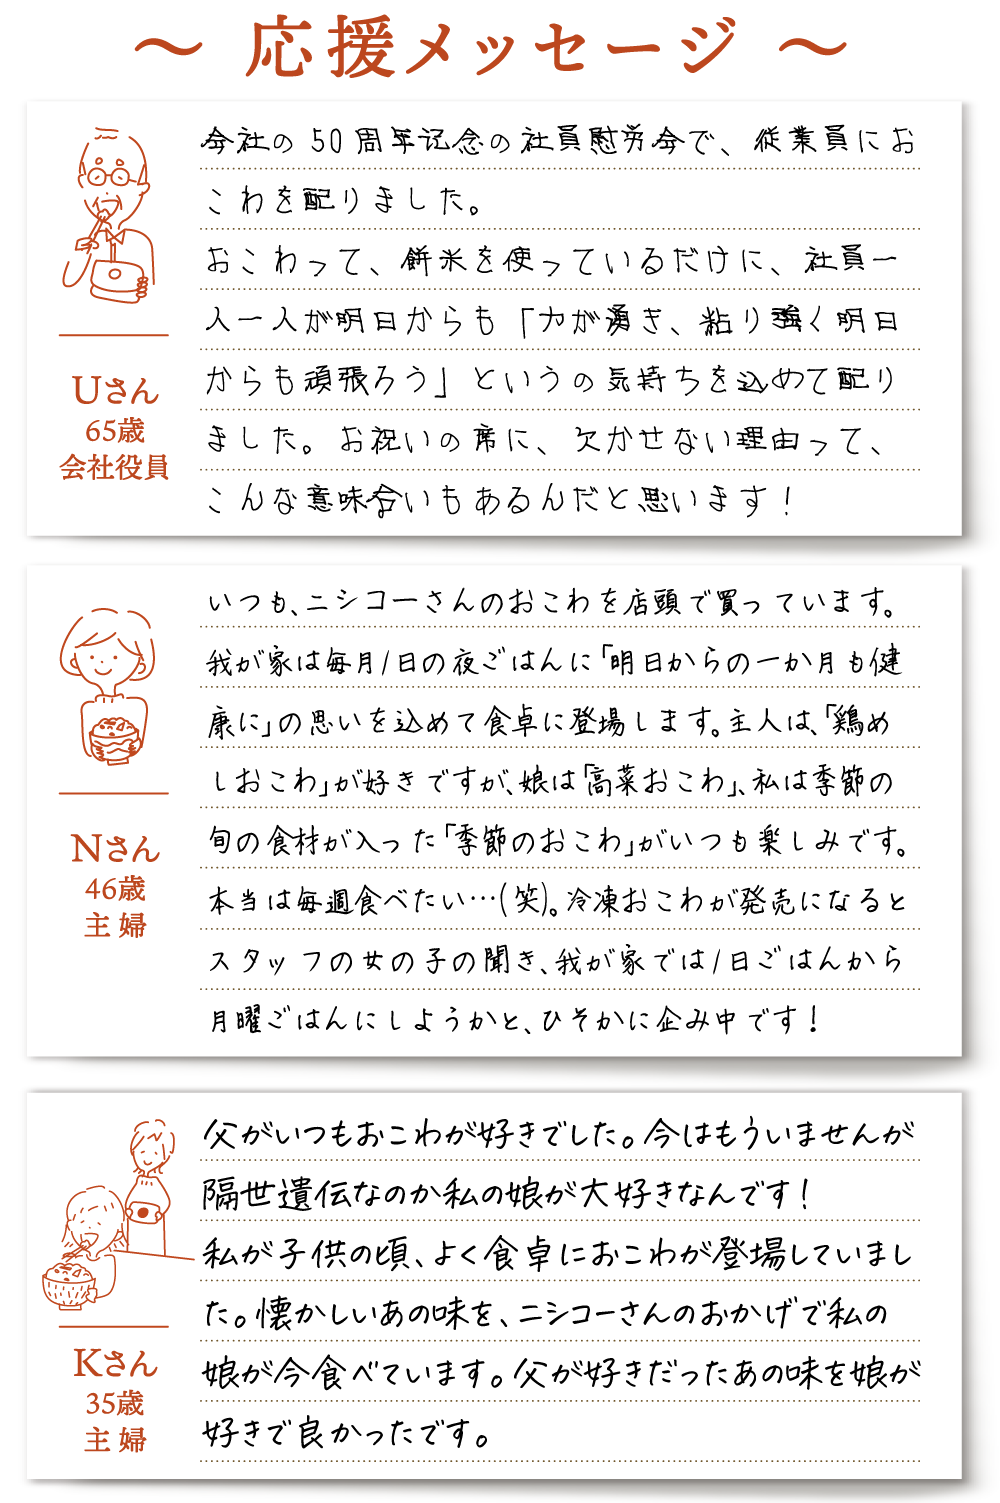 ～ 応援メッセージ ～
会社の50周年記念の社員慰労会で、従業員にお
こわを配りました。
おこわって、餅米を使っているだけに、社員一
人一人が明日からも「力が湧き、粘り強く明日
からも頑張ろう」というの気持ちを込めて配り
ました。お祝いの席に、欠かせない理由って、
こんな意味合いもあるんだと思います！
Uさん
65歳
会社役員
いつも、ニシコーさんのおこわを店頭で買っています。
我が家は毎月1日の夜ごはんに「明日からの一か月も健
康に」の思いを込めて食卓に登場します。主人は、「鶏め
しおこわ」が好きですが、娘は「高菜おこわ」、私は季節の
旬の食材が入った「季節のおこわ」がいつも楽しみです。
本当は毎週食べたい…(笑)。冷凍おこわが発売になると
スタッフの女の子の聞き、我が家では1日ごはんから
月曜ごはんにしようかと、ひそかに企み中です！
Nさん
46歳
主婦
父がいつもおこわが好きでした。今はもういませんが
隔世遺伝なのか私の娘が大好きなんです！
私が子供の頃、よく食卓におこわが登場していまし
た。懐かしいあの味を、ニシコーさんのおかげで私の
娘が今食べています。父が好きだったあの味を娘が
好きで良かったです。
Kさん
35歳
主婦